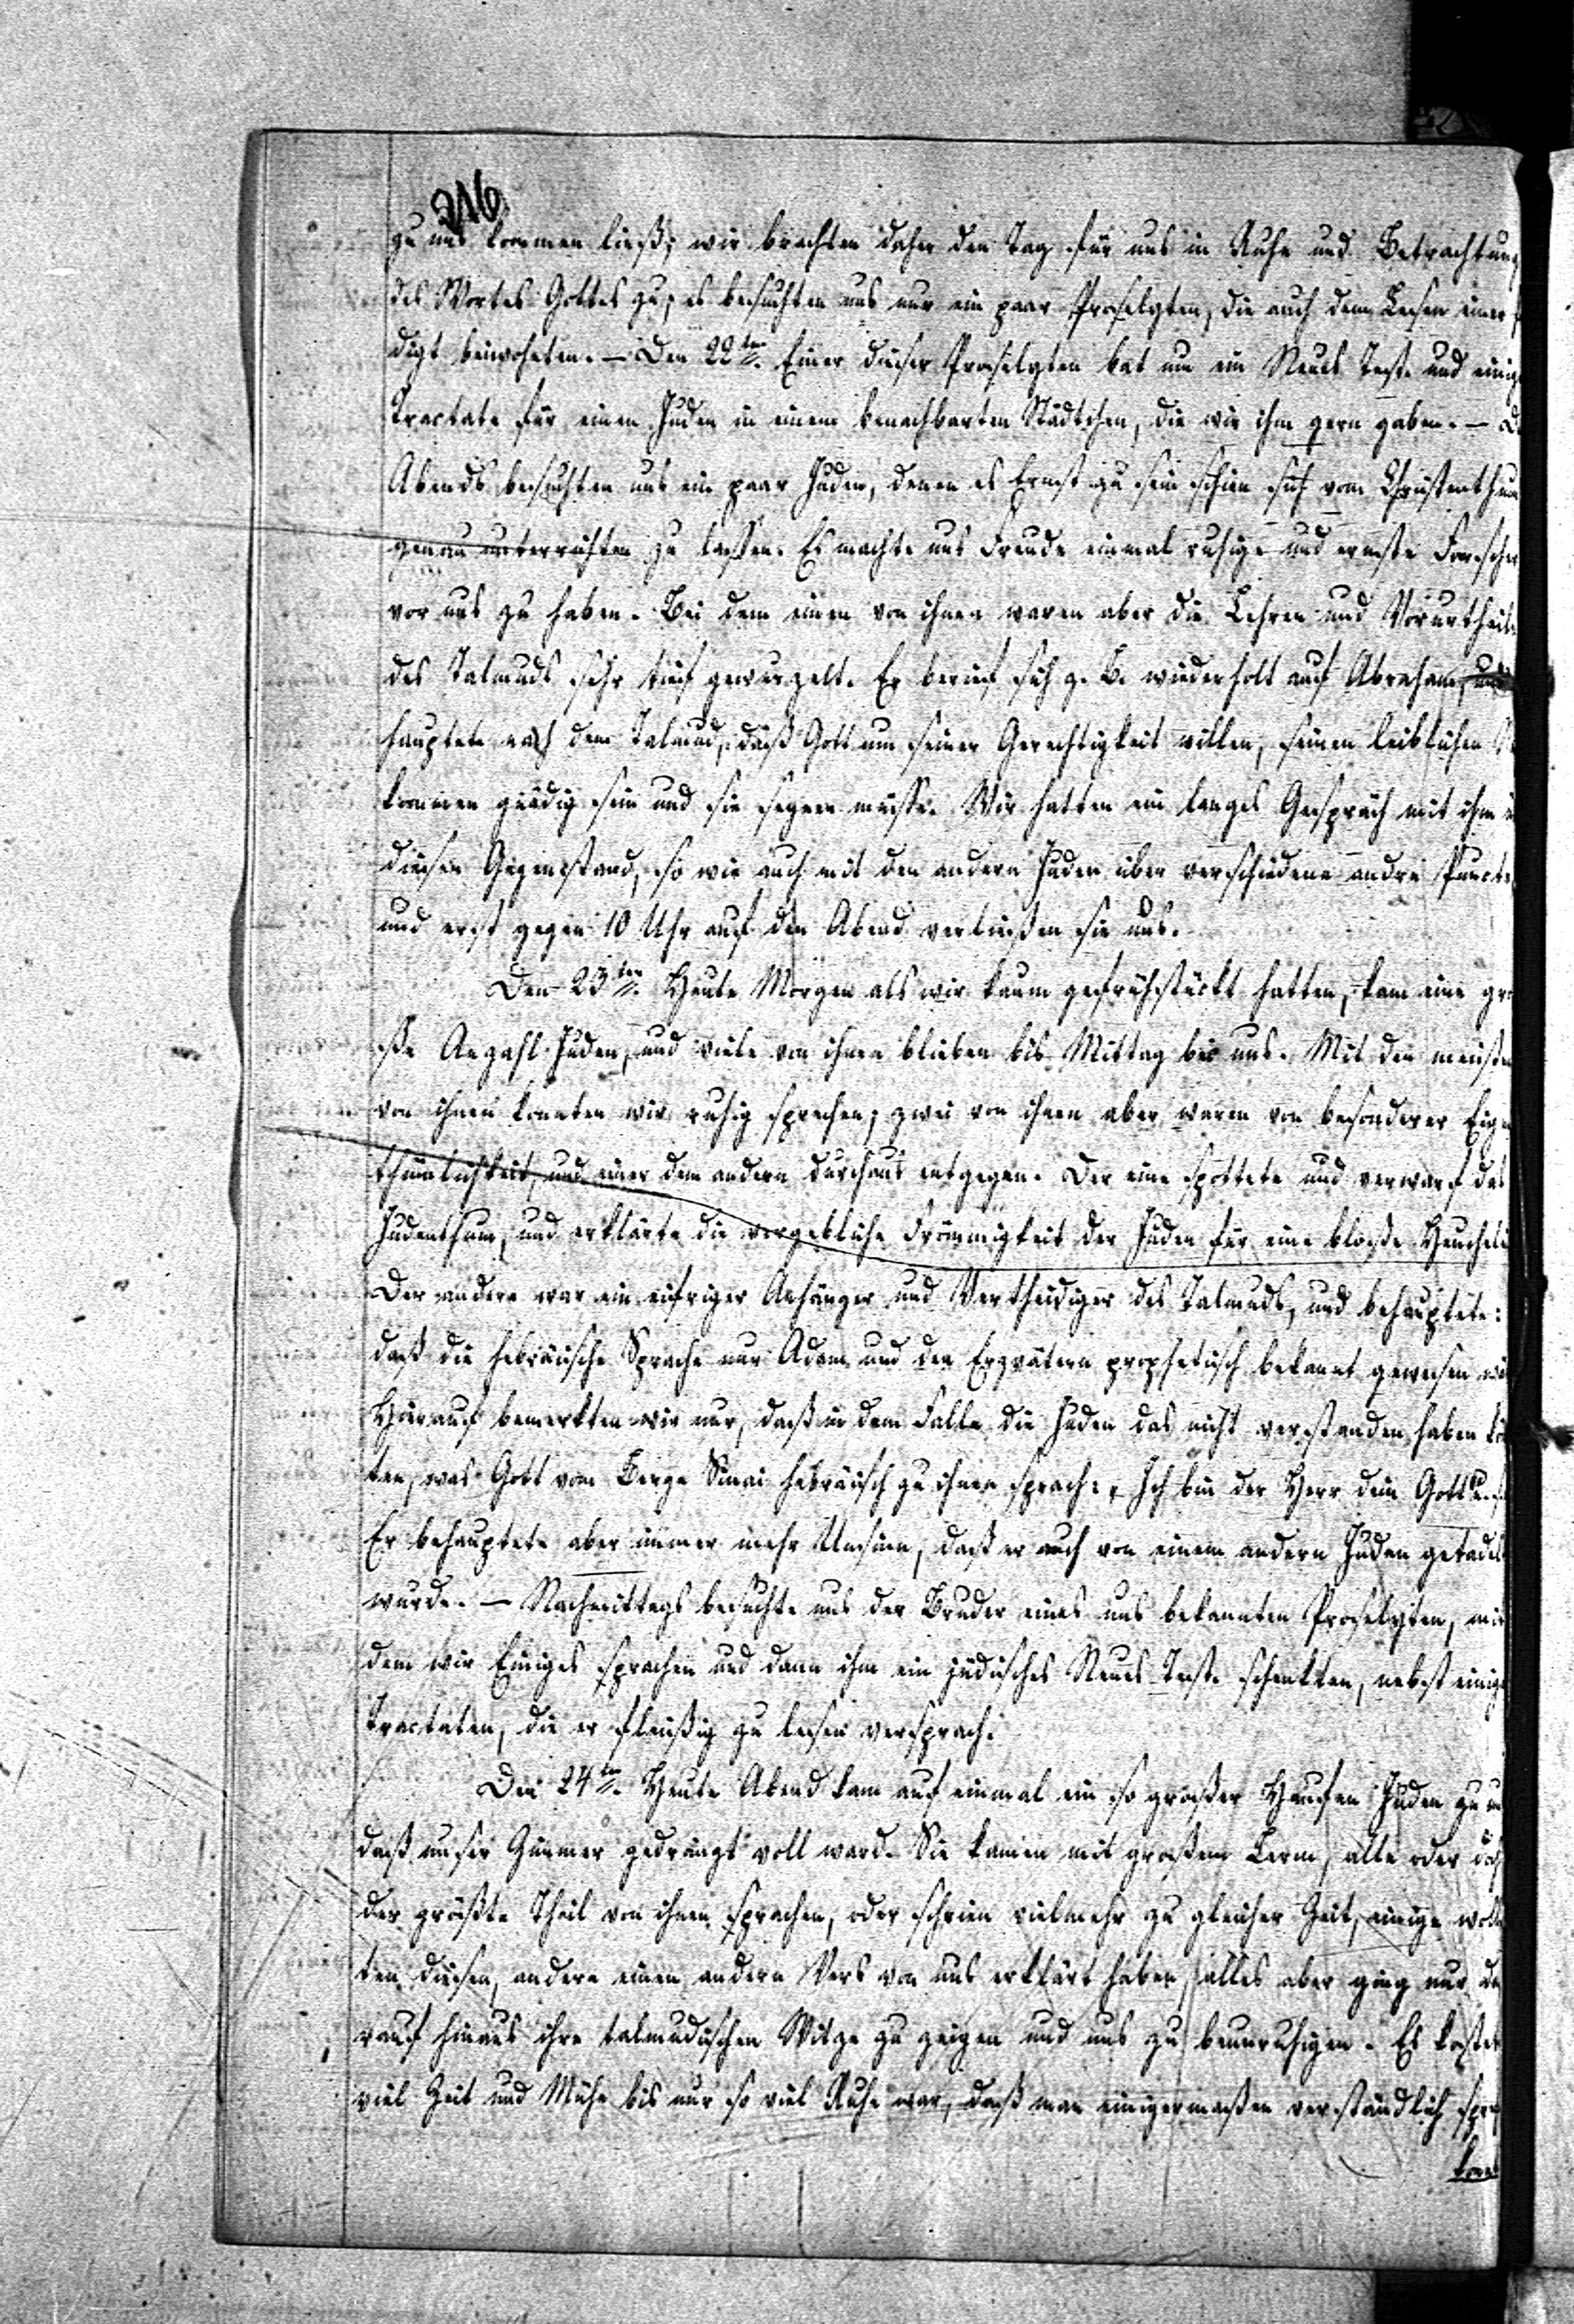 216
zu uns kommen ließ; wir brachten daher den Tag für uns in Ruhe und Betrachtung
des Wortes Gottes zu; es besuchten uns nur ein paar Proselyten, die auch dem Lesen einer
digt beiwohnten. – Den 22ten. Einer dieser Proselyten bat um ein Neues Test. und einige
Tractate für einen Juden in einem benachbarten Städtchen, die wir ihm gern gaben. –
Abends besuchten uns ein paar Juden, denen es Ernst zu sein schien sich vom Christenthum
genau unterrichten zu lassen. Es machte uns Freude einmal ruhige und ernste Forscher
vor uns zu haben. Bei dem einen von ihnen waren aber die Lehren und Vorurtheile
des Talmuds sehr tief gewurzelt. Er berief sich z. B. wiederholt auf Abraham, und
hauptete nach dem Talmud, daß Gott um seiner Gerechtigkeit willen, seinen leiblichen
kommen gnädig sein und sie segnen müsse. Wir hatten ein langes Gespräch mit ihm
diesen Gegenstand, so wie auch mit den andern Juden über verschiedene andre Puncte
und erst gegen 10 Uhr auf den Abend verließen sie uns.
Den 23ten. Heute Morgen als wir kaum gefrühstückt hatten, kam eine gro
ße Anzahl Juden, und viele von ihnen blieben bis Mittag bei uns. Mit den meisten
von ihnen konnten wir ruhig sprechen; zwei von ihnen aber waren von besonderer Eigen
thümlichkeit, und einer dem andern durchaus entgegen. Der eine spottete und verwarf das
Judenthum, und erklärte die vergebliche Frömmigkeit der Juden für eine bloße Heuchelei
Der andere war ein eifriger Anhänger und Vertheidiger des Talmuds, und behauptete:
daß die hebräische Sprache nur Adam und den Erzvätern prophetisch bekannt gewesen
Hierauf bemerkten wir nur, daß in dem Falle die Juden das nicht verstanden haben
ten, was Gott vom Berge Sinai hebräisch zu ihnen sprach: Ich bin der Herr dein Gott
Er behauptete aber immer mehr Unsinn, daß er auch von einem andern Juden getadelt
wurde. – Nachmittags besuchte uns der Bruder eines uns bekannten Proselyten, mit
dem wir Einiges sprachen und dann ihm ein jüdisches Neues Test. schenkten, nebst einigen
Tractaten, die er fleißig zu lesen versprach.
Den 24ten. Heute Abend kam auf einmal ein so großer Haufen Juden zu
daß unser Zimmer gedrängt voll ward. Sie kamen mit großem Lerm, alle oder doch
der größte Theil von ihnen sprachen, oder schrien vielmehr zu gleicher Zeit, einige woll
ten diesen, andere einen andern Vers von uns erklärt haben, alles aber ging nur da
rauf hinaus ihre talmudischen Witze zu zeigen und uns zu beunruhigen. Es kostete
viel Zeit und Mühe bis nur so viel Ruhe war, daß man einigermaßen verständlich